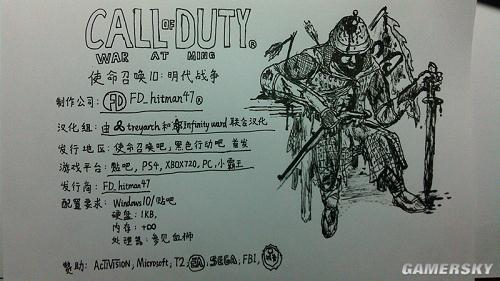 CALL OF DUTY®
WAR AT MING
使命召唤10:明代战争
制作公司: FD FD_hitman47®
汉化组: 由 treyarch和 Infinity ward 联合汉化
发行地区: 使命召唤吧,黑色行动吧 首发
游戏平台: 贴吧, PS4, XBOX720, PC, 小霸王
发行商: FD_hitman47
配置要求: Windows 10/贴吧
硬盘: 1KB,
内存: +∞
处理器: 参见血狮
赞助: ACTIVISION, Microsoft, T2, EA, SEGA, FBI,
GAMERSKY